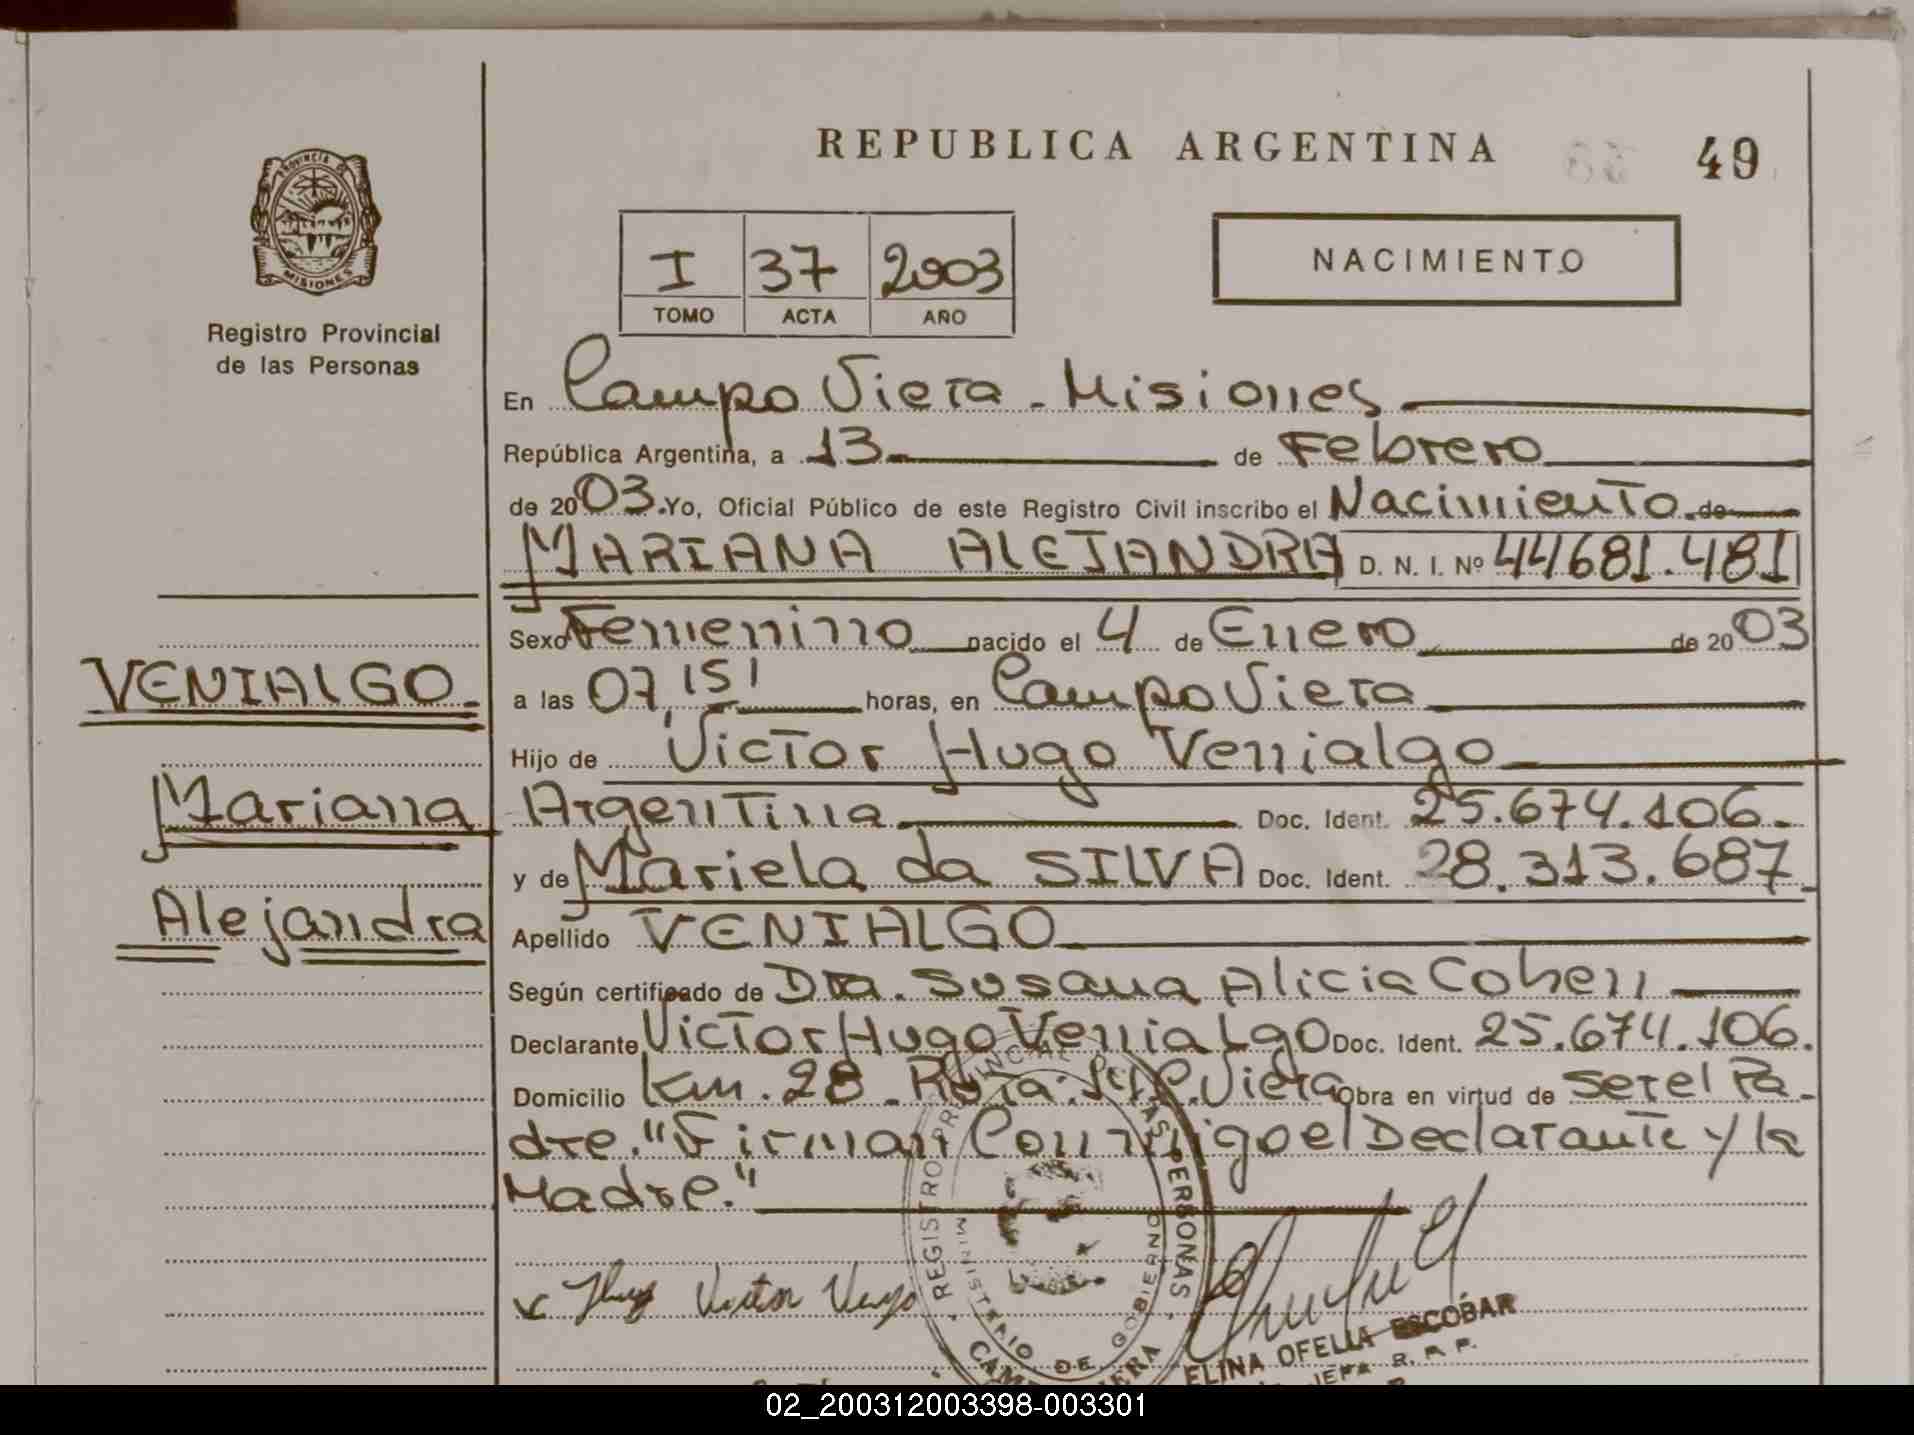 REPUBLICA ARGENTINA
49
PROVINCIA DE
MISIONES
Registro Provincial
de las Personas
I 37 2003
TOMO ACTA AÑO
NACIMIENTO
En Campo Viera - Misiones
República Argentina, a 13 de Febrero
de 2003. Yo, Oficial Público de este Registro Civil inscribo el Nacimiento de
MARIANA ALEJANDRA D. N. I. Nº 44681.481
Sexo Femenino nacido el 4 de Enero de 2003
VENIALGO
a las 07,15' horas, en Campo Viera
Hijo de Victor Hugo Venialgo
Mariana
Argentina Doc. Ident. 25.674.106.
y de Mariela da SILVA Doc. Ident. 28.313.687
Alejandra
Apellido VENIALGO
Según certificado de Dra. Susana Alicia Cohen
Declarante Victor Hugo Venialgo Doc. Ident. 25.674.106.
Domicilio Km. 28 - Ruta: C. Viera Obra en virtud de ser el Pa-
dre. "Firman Conmigo el Declarante y la
Madre."
REGISTRO PROVINCIAL DE LAS PERSONAS
MINISTERIO DE GOBIERNO
Victor
ELINA OFELIA ESCOBAR
JEFA R. P. P.
02_200312003398-003301